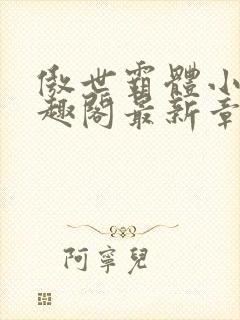 傲世霸體小
趣閣最新章
阿寧兒